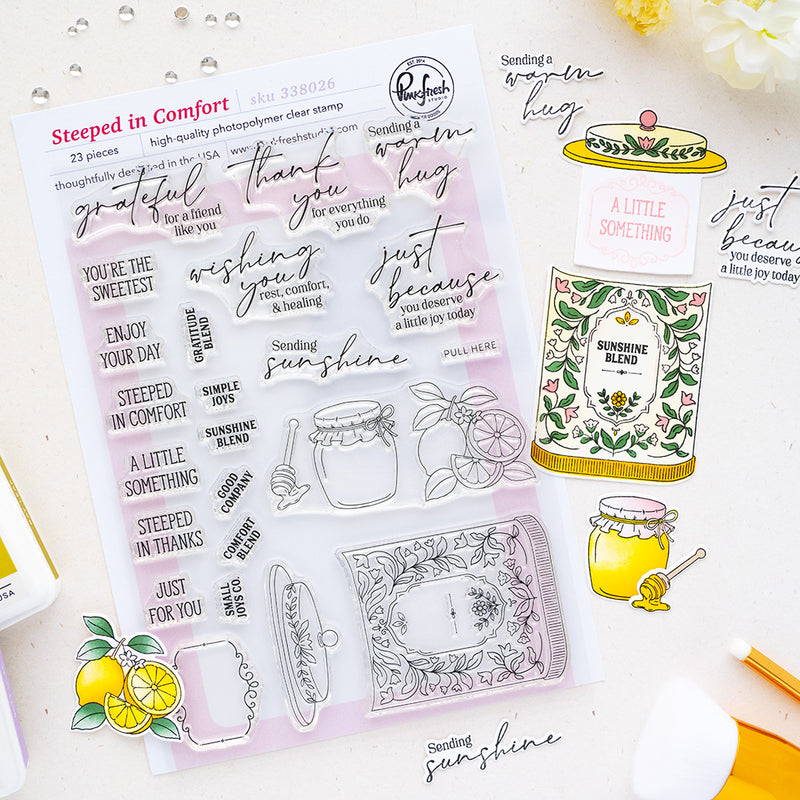 Steeped in Comfort
sku 338026
EST. 2014
Pinkfresh
STUDIO
23 pieces
high-quality photopolymer clear stamp
thoughtfully designed in the USA
www.pinkfreshstudio.com
grateful
for a friend
like you
thank
you
for everything
you do
Sending a
warm
hug
YOU'RE THE
SWEETEST
wishing
you
rest, comfort,
& healing
just
because
you deserve
a little joy today
ENJOY
YOUR DAY
GRATITUDE
BLEND
Sending
sunshine
PULL HERE
STEEPED
IN COMFORT
SIMPLE
JOYS
SUNSHINE
BLEND
A LITTLE
SOMETHING
GOOD
COMPANY
STEEPED
IN THANKS
COMFORT
BLEND
JUST
FOR YOU
SMALL
JOYS CO.
Sending a
warm
hug
A LITTLE
SOMETHING
just
because
you deserve
a little joy today
SUNSHINE
BLEND
Sending
sunshine
USA